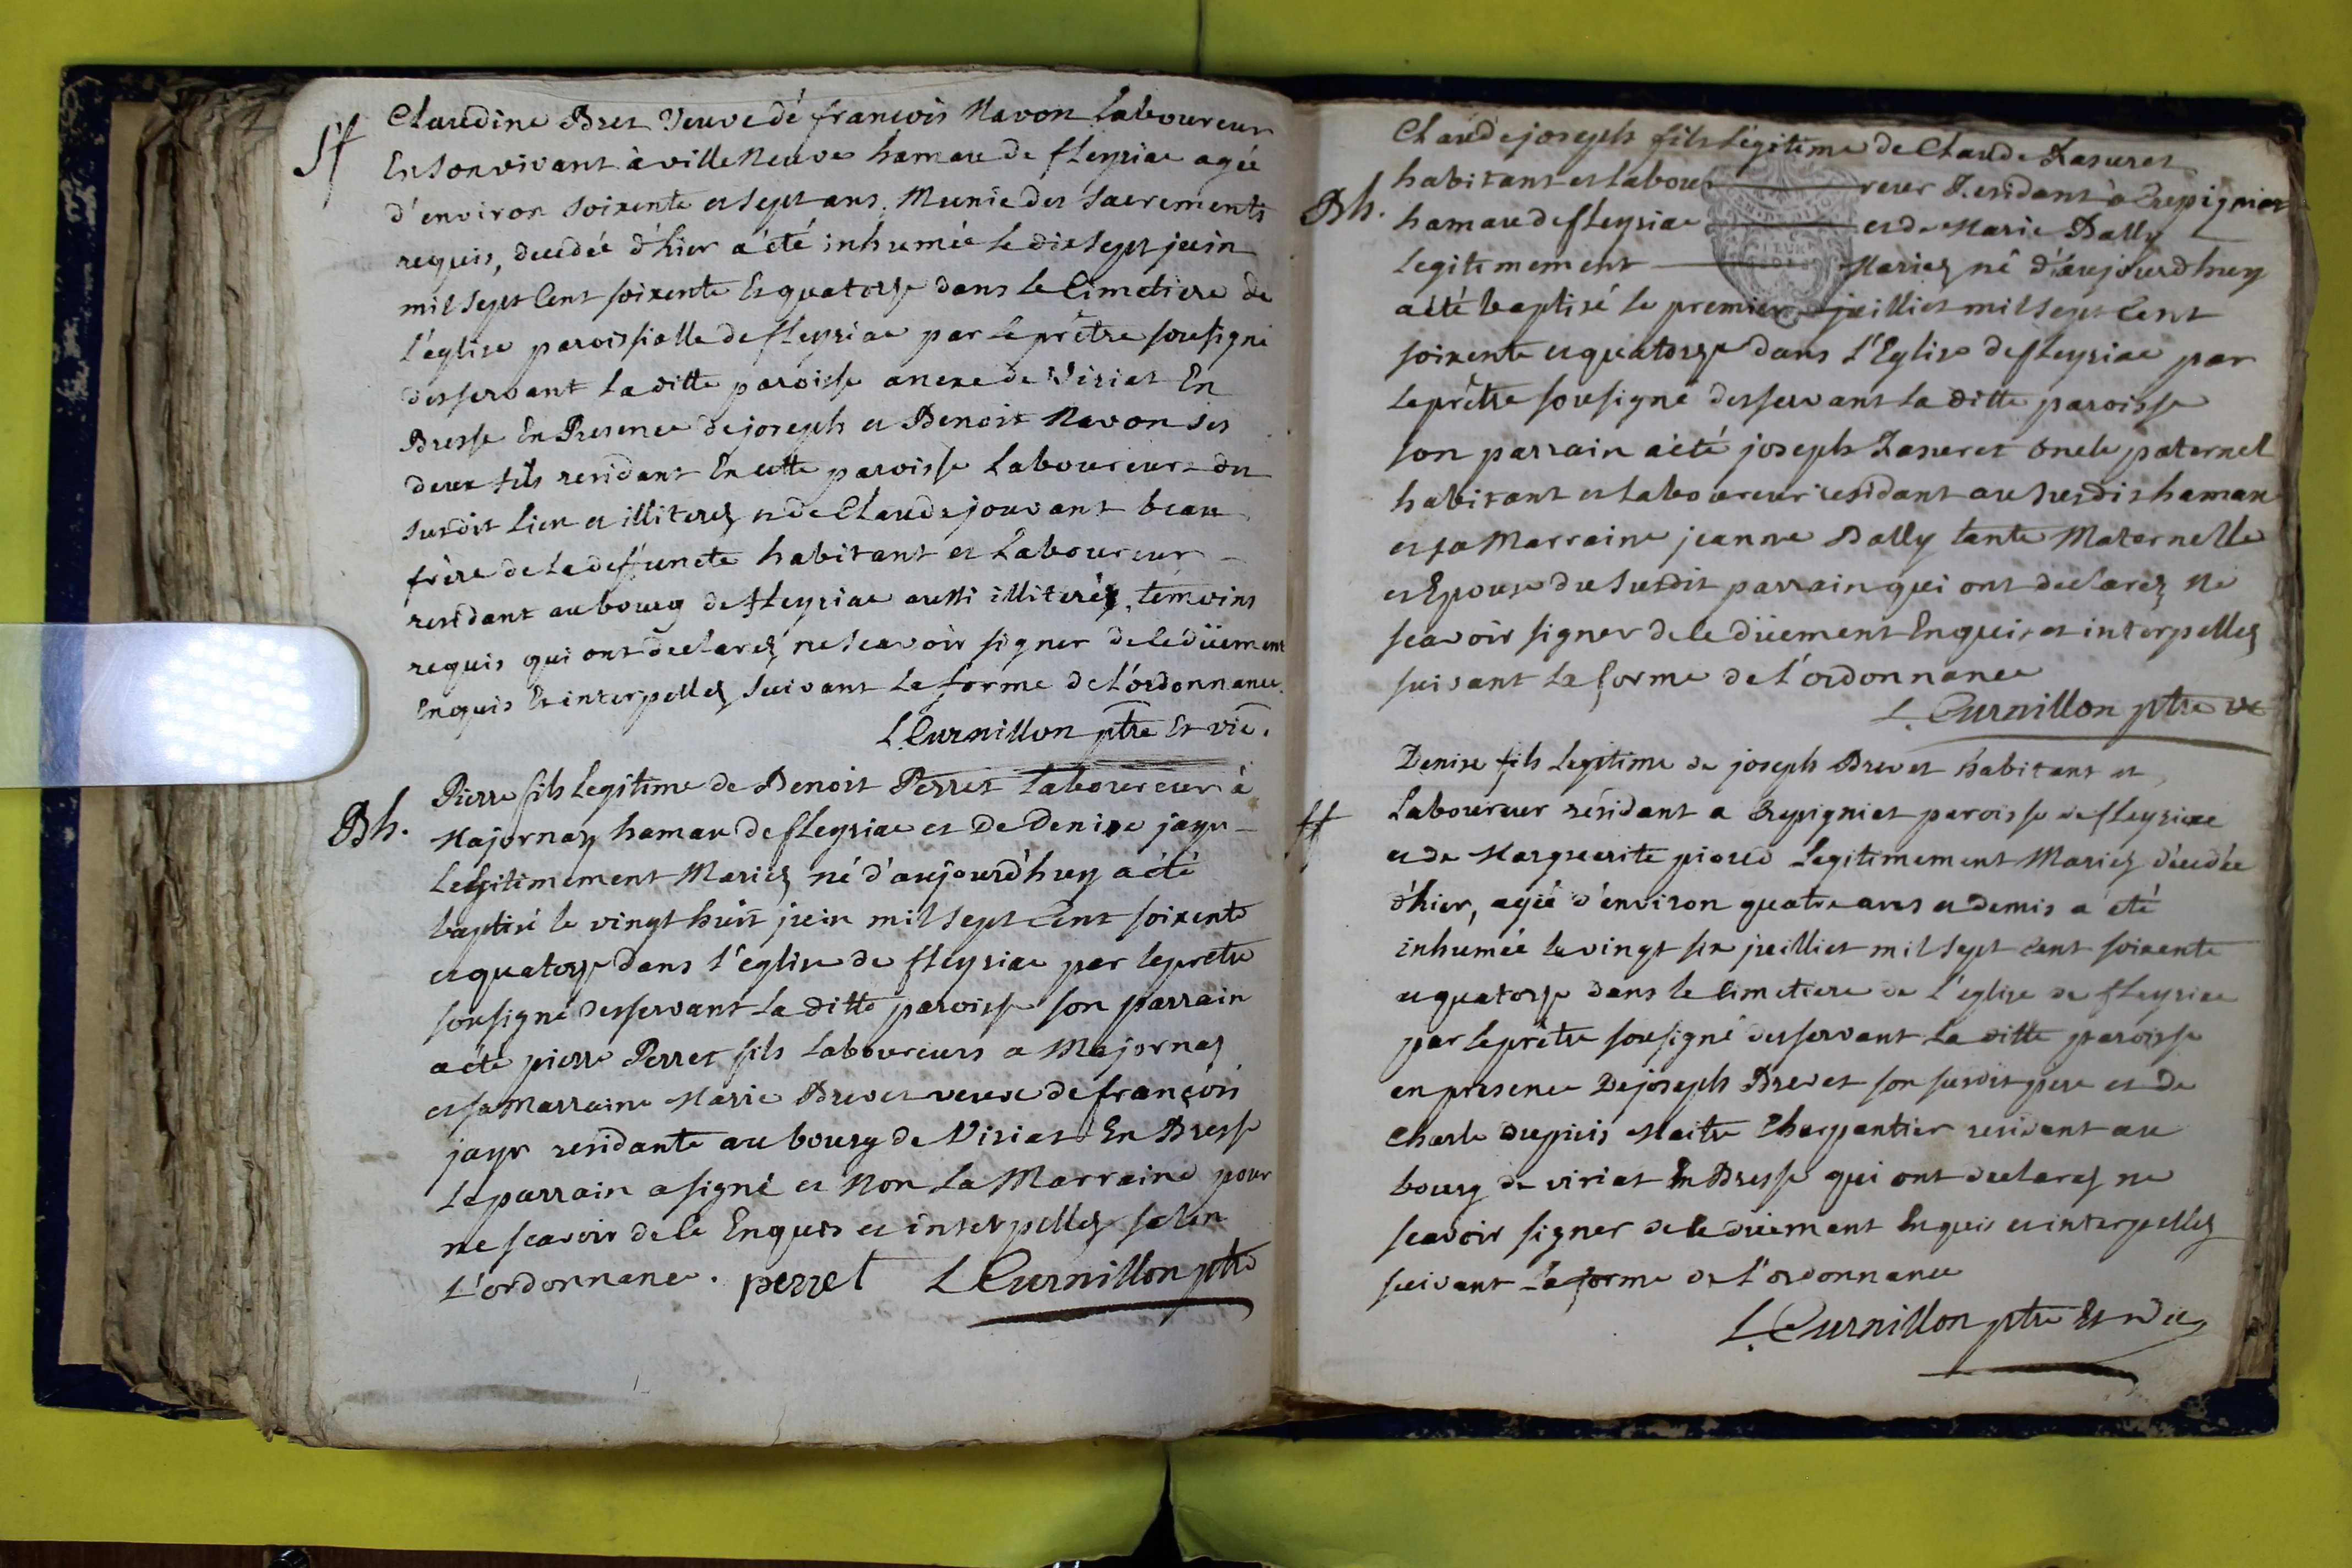 Claudine Bret Veuve de françois Navon Laboureur
En Son vivant à ville Neuve hamau de fleyriae agée
d'environ soixente et sept ans. Munie des Sacrements
requis, decedée d'hier a été inhumée le dix sept juin
mil sept Cent soixente Et quatorze dans le Cimetiere de
l'eglise paroissialle de fleyriae par le prêtre sousigné
desservant la ditte paroisse anexe de Viriat En
Bresse En Presence de joseph et Benoit Navon ses
deux fils residant En cette paroisse Laboureurs du
susdit Lieu et illiterez et de Claude jouvant beau
frère de la deffuncte habitant et Laboureur
residant au bourg de fleyriae aussi illiteréz, temoins
requis qui ont declarez ne scavoir signer de ce düement
Enquis Et interpellez suivant la forme de l'ordonnance.
L. Curnillon ptre Et vic.
Bh.
Pierre fils Legitime de Benoit Perret Laboureur à
Majornaz hamau de fleyriae et De Denise jayr
Legitimement Mariez né d'aujourd'huy a été
baptisé le vingt huit juin mil sept Cent soixente
et quatorze dans l'eglise de fleyriae par le pretre
sousigné desservant la ditte paroisse son parrain
a été pierre Perret fils Laboureurs a Majornaz
et sa Marraine Marie Brevet veuve de françois
jayr residante au bourg de Viriat En Bresse
Le parrain a signé et Non La Marraine pour
ne scavoir de ce Enquis et interpellez selon
L'ordonnance. perret L Curnillon ptre
Claude joseph fils Légitime de Claude
habitant et Labou reur Residant à
Bh.
hamau de fleyriae et de Marie Bally
Legitimement Mariez né d'aujourdhuy
a été baptisé le premier juilliet mil sept Cent
soixente et quatorze dans l'Eglise de fleyriae par
Le prêtre sousigné desservant la ditte paroisse
son parrain a été joseph oncle paternel
habitant et laboureur residant au susdit hamau
et sa Marraine jeanne Bally tante Maternelle
et Epouse du susdit parrain qui ont declarez Ne
scavoir signer de ce düement Enquis et interpellez
suivant la forme de l'ordonnance
L. Curnillon ptre
Denise fils Legitime de joseph Brevet habitant et
Laboureur résidant a paroisse de fleyriae
et de Marguerite Legitimement Mariez décedée
d'hier, agée d'environ quatre ans et demis a été
inhumée le vingt six juilliet mil sept cent soixente
et quatorze dans le Cimetiere de l'eglise de fleyriae
par le prêtre sousigné desservant la ditte paroisse
en presence De joseph Brevet son susdit père et de
Charle dupuis Maitre Charpantier residant au
bourg de viriat En Bresse qui ont declarez ne
scavoir signer de ce düement Enquis et interpellez
suivant la forme de l'ordonnance
L. Curnillon ptre Et vic